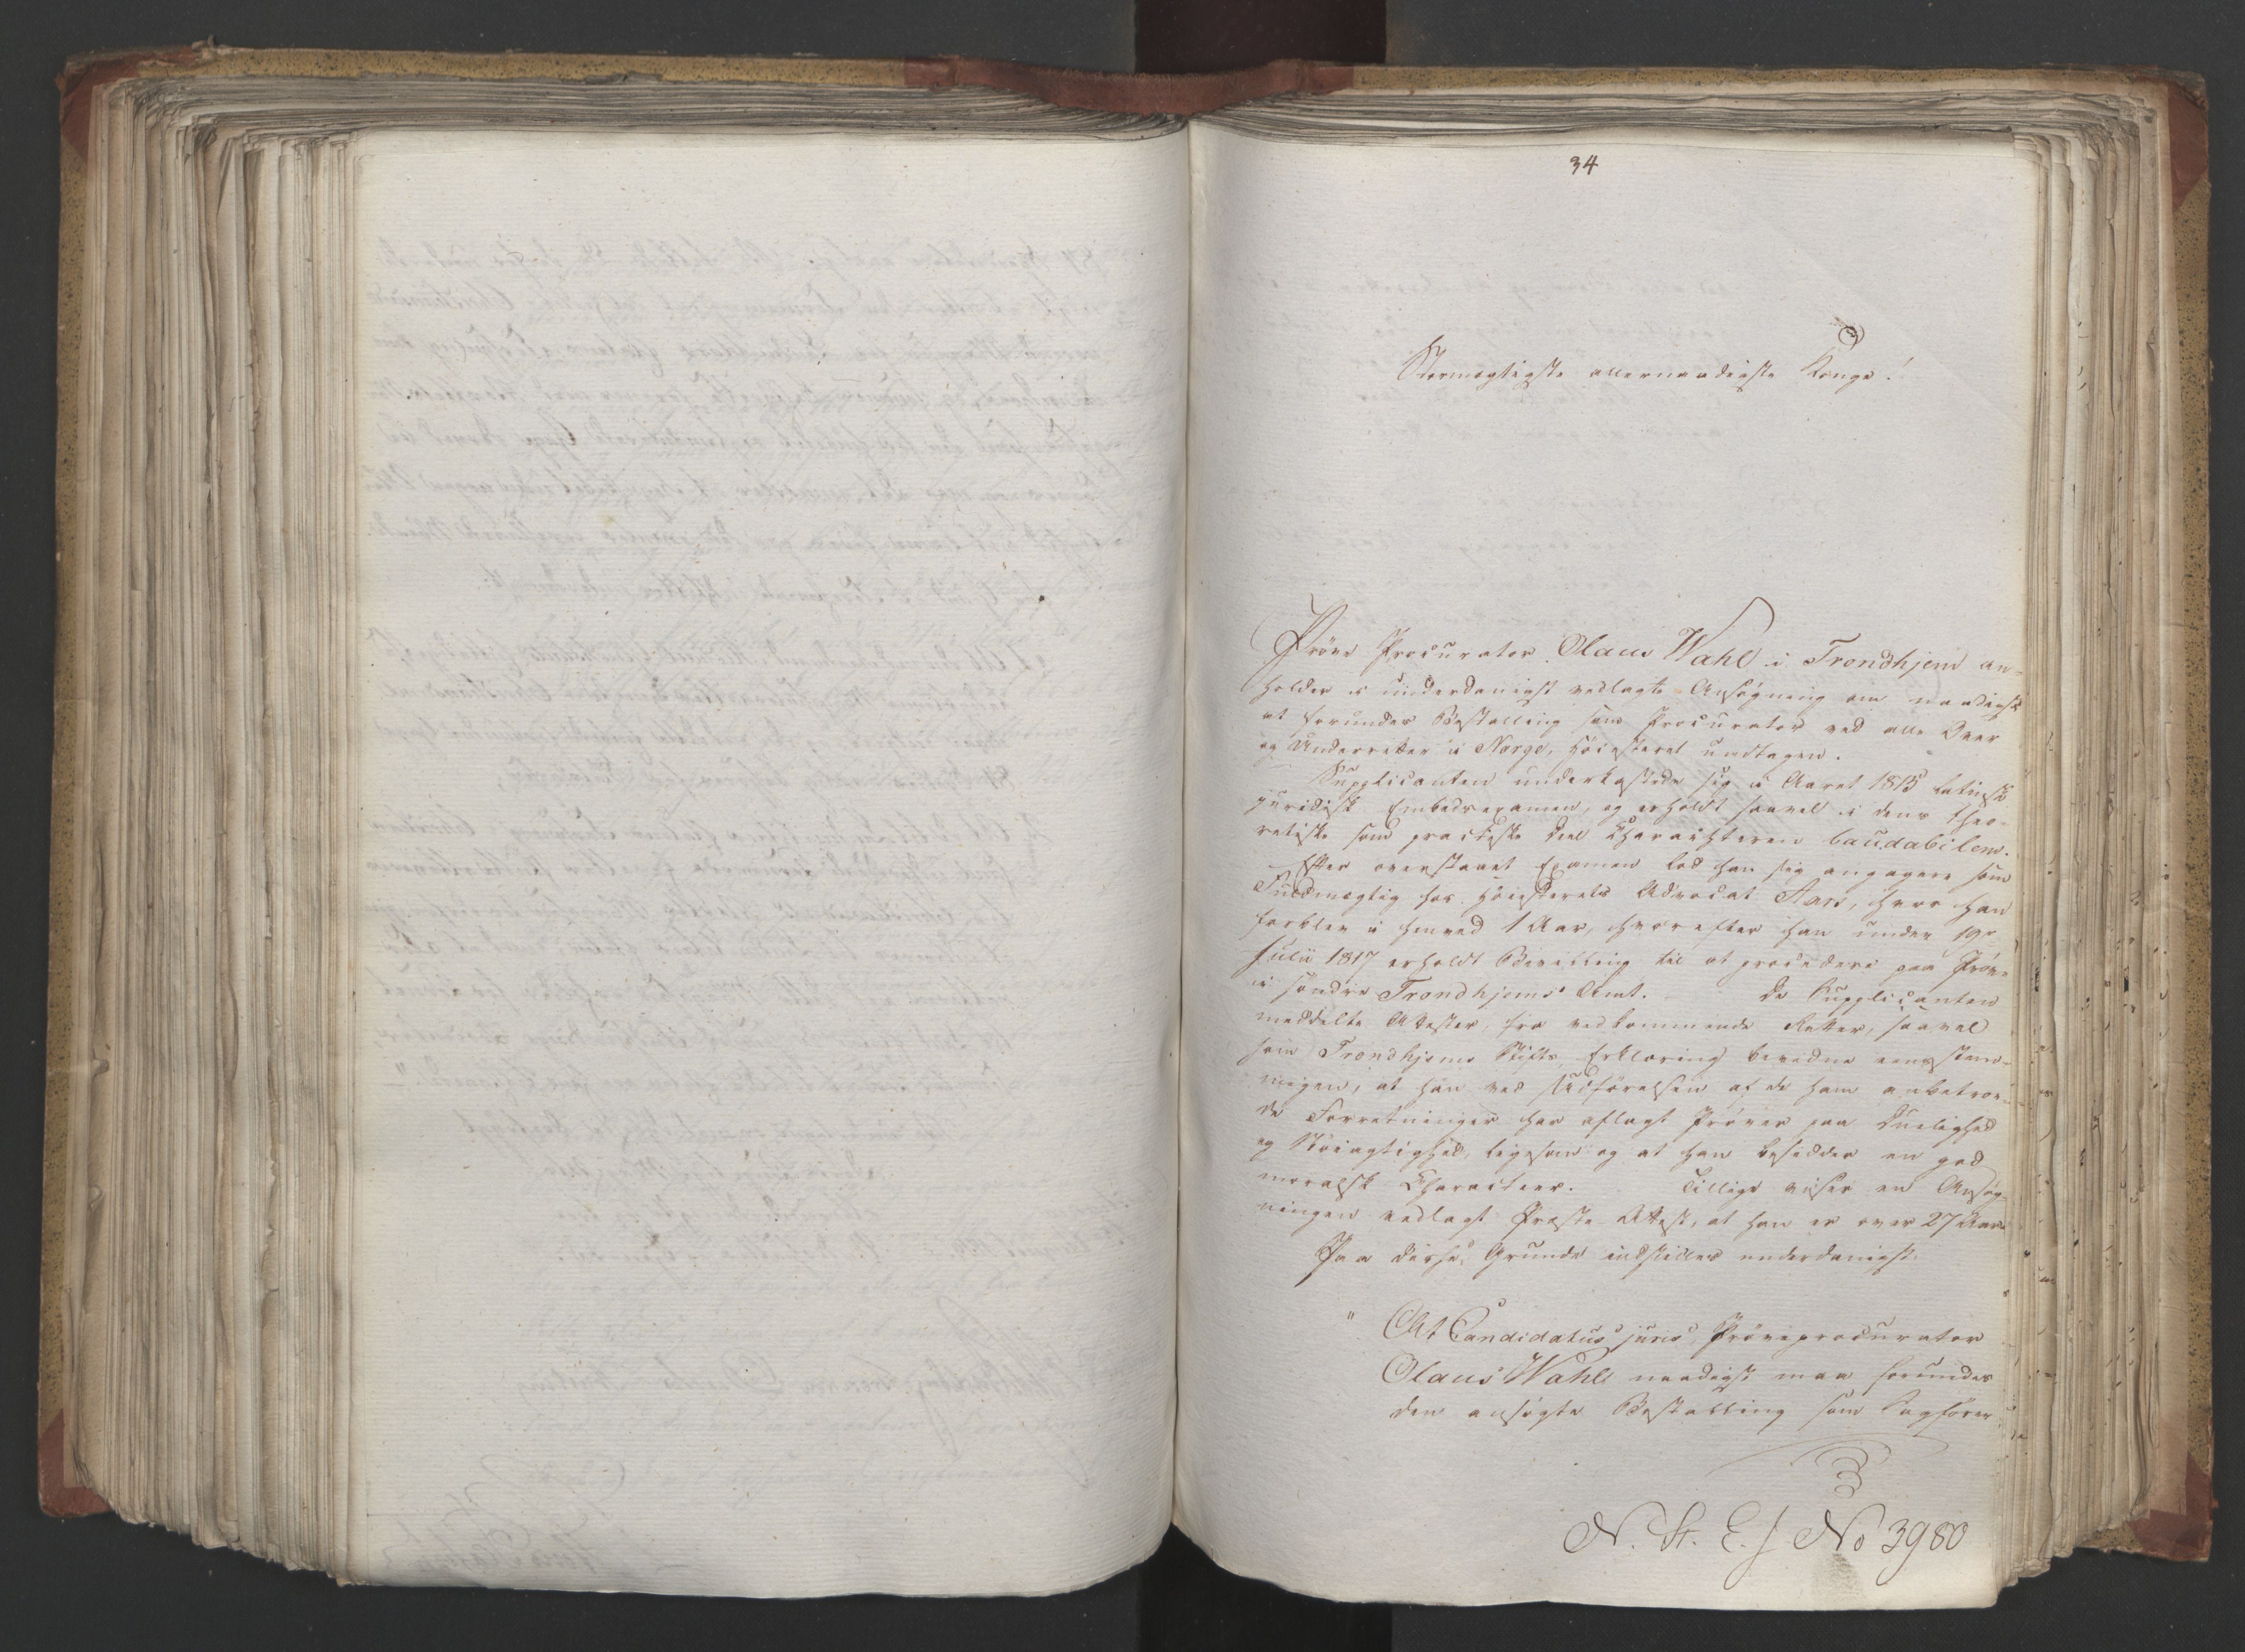 34
Stormægtigste allernaadigste Konge!
Pröve Procurator Olaus Wahl i Trondhjem an-
holder i underdanigst vedlagte Ansögning om naadigst
at forundes Bestalling som Procurator ved alle Over
og Underretter i Norge, Höiesteret undtagen.
Supplicanten underkastede sig i Aaret 1815 latinsk
juridisk Embedsexamen, og erholdt saavel i dens theo-
retiske som practiske Deel Charachteren laudabilem.
Efter overstaaet Examen lod han sig engagere som
Fuldmægtig hos Höiesterets Advocat Aars, hvor han
forblev i henved 1 Aar, hvorefter han under 19de
Julii 1817 erholdt Bevilling til at procedere paa Pröve
i söndre Trondhjems Amt. De Supplicanten
meddelte Attester, fra vedkommende Retter, saavel
som Trondhjems Stifts Erklæring bevidne eenstem-
migen, at han ved Udförelsen af de ham anbetroe-
de Forretninger har aflagt Pröver paa Duelighed
og Nöiagtighed, ligesom og at han besidder en god
moralsk Characteer. Tillige viser en Ansög-
ningen vedlagt Præste-Attest, at han er over 27 Aar.
Paa disse Grunde indstilles underdanigst:
" At Candidatus juris, Pröveprocurator
Olaus Wahl naadigst maa forundes
den ansögte Bestalling som Sagförer
N. St. E. J No 3980